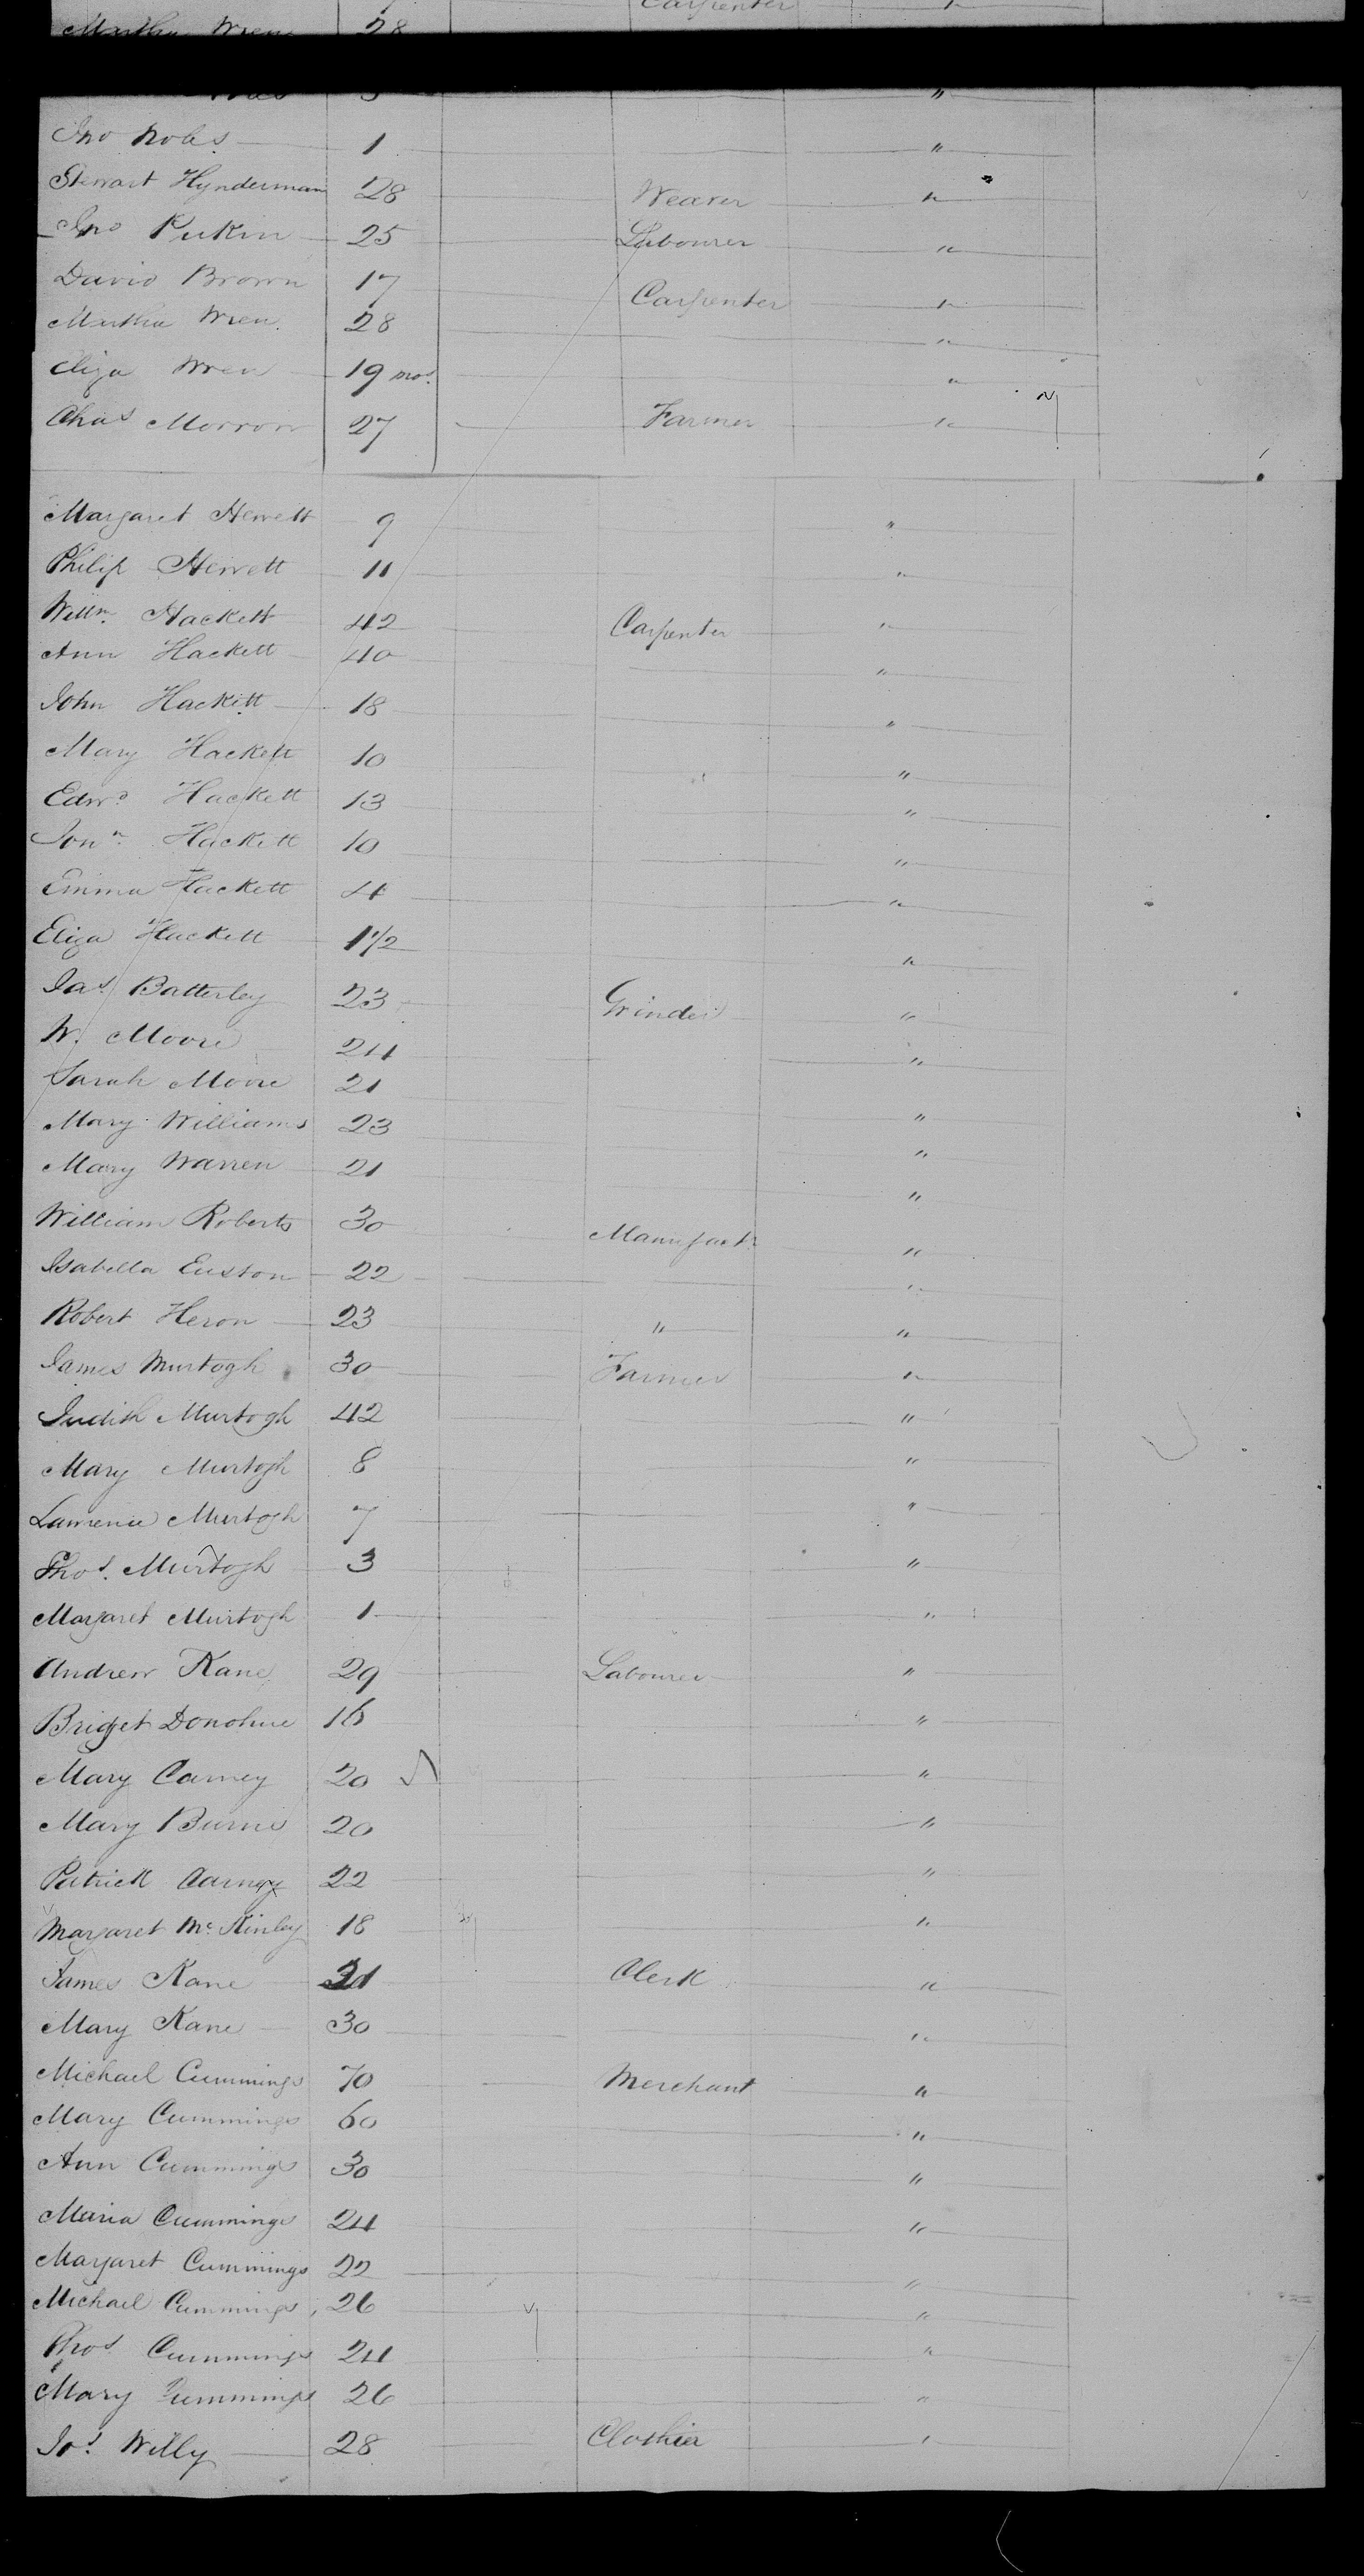 Carpenter "
Martha Wren 28
"
Jno Nobes 1 "
Stewart Hynderman 28 Weaver "
Jno 25 Labourer "
David Brown 17 Carpenter "
Martha Wren 28 "
Eliza Wren 19 mos. "
Chas Morrow 27 Farmer "
Margaret Hewett 9 "
Philip Hewett 11 "
Willm. Hackett 42 Carpenter "
Ann Hackett 40 "
John Hackett 18 "
Mary Hackett 10 "
Edwd Hackett 13 "
Jonn. Hackett 10 "
Emma Hackett 4 "
Eliza Hackett 1 1/2 "
Jas. Batterley 23 Grinder "
W. Moore 24 "
Sarah Moore 21 "
Mary Williams 23 "
Mary Warren 21 "
William Roberts 30 Manufactr "
Isabella Euston 22 "
Robert Heron 23 " "
James Murtogh 30 Farmer "
Judith Murtogh 42 "
Mary Murtogh 8 "
Lawrence Murtogh 7 "
Thos. Murtogh 3 "
Margaret Murtogh 1 "
Andrew Kane 29 Labourer "
Bridget Donohue 16 "
Mary Carney 20 "
Mary Burns 20 "
Patrick Carney 22 "
Margaret Mc Kinley 18 "
James Kane 31 Clerk "
Mary Kane 30 "
Michael Cummings 70 Merchant "
Mary Cummings 60 "
Ann Cummings 30 "
Maria Cummings 24 "
Margaret Cummings 22 "
Michael Cummings 26 "
Thos Cummings 24 "
Mary Cummings 26 "
Jos. Willy 28 Clothier "